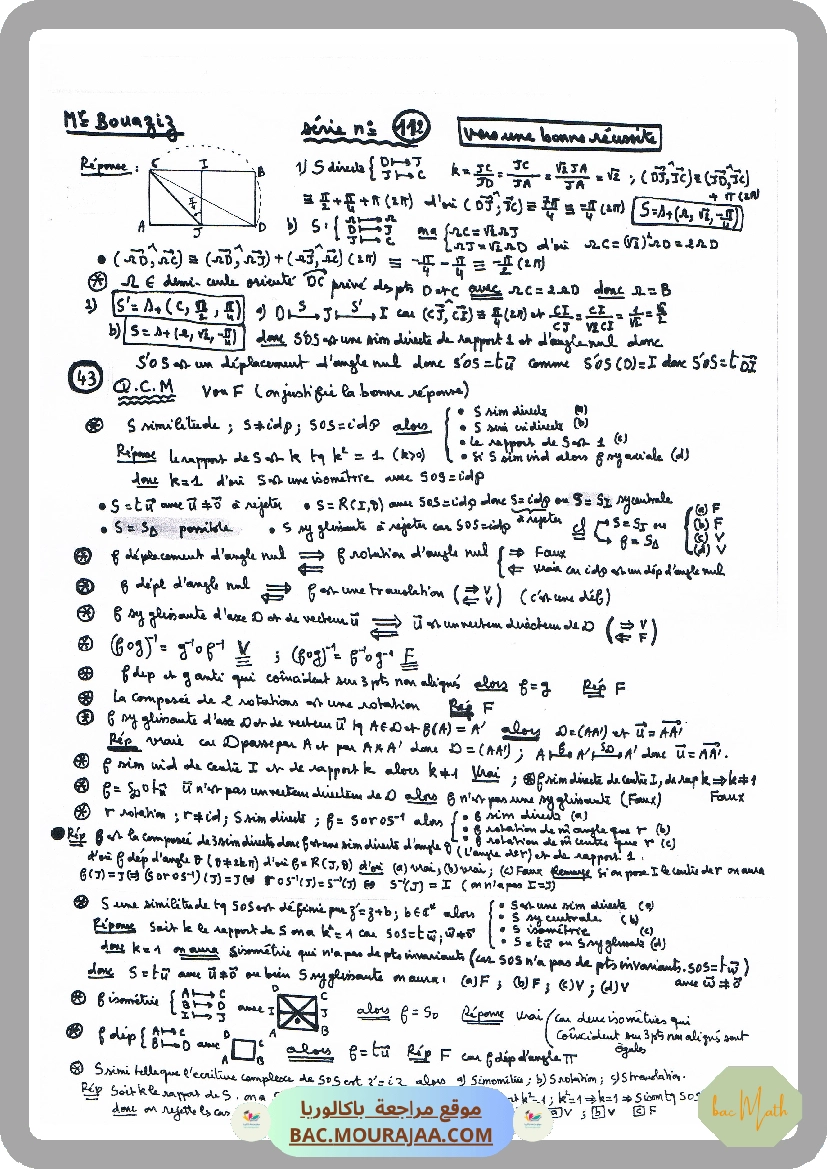 Mr Bouaziz
série n° 112
Vers une bonne réussite
Réponse :
C I B
A J D
π/4
1) S directe { D ↦ J
J ↦ C
k = JC/JD = JC/JA = √2 JA/JA = √2 ; (DJ, JC) ≡ (JD, JC) + π (2π)
≡ π/2 + π/4 + π (2π) d'où (DJ, JC) ≡ 7π/4 ≡ -π/4 (2π) S = s+(Ω, √2, -π/4)
b) S : { Ω ↦ Ω
D ↦ J
J ↦ C
on a { ΩC = √2 ΩJ
ΩJ = √2 ΩD d'où ΩC = (√2)² ΩD = 2ΩD
• (ΩD, ΩC) ≡ (ΩD, ΩJ) + (ΩJ, ΩC) (2π) ≡ -π/4 - π/4 ≡ -π/2 (2π)
* Ω ∈ demi-cercle orienté DC privé des pts D et C avec ΩC = 2ΩD donc Ω = B
2) S' = s+(C, √2/2, π/4) a) D —S→ J —S'→ I car (CJ, CI) ≡ π/4 (2π) et CI/CJ = CI/√2 CI = 1/√2 = √2/2
b) S = s+(Ω, √2, -π/4) donc S'oS est une sim directe de rapport 1 et d'angle nul donc
S'oS est un déplacement d'angle nul donc S'oS = tu comme S'oS (D) = I donc S'oS = t DI
43 Q.C.M V ou F (on justifie la bonne réponse)
* S similitude ; S ≠ idp ; SoS = idp alors
• S sim directe (a)
• S sim indirecte (b)
• le rapport de S est 1 (c)
• Si S sim ind alors f sy axiale (d)
Réponse le rapport de S est k tq k² = 1 (k>0)
donc k = 1 d'où S est une isométrie avec SoS = idp
• S = tu avec u ≠ 0 à rejeter • S = R(I, θ) avec SoS = idp donc S = idp ou S = SI sy centrale
à rejeter
• S = SΔ possible • S sy glissante à rejeter car SoS = idp
cl S = SI ou
f = SΔ
(a) F
(b) F
(c) V
(d) V
* f déplacement d'angle nul ⟹ ⟸ f rotation d'angle nul { ⇒ Faux
⇐ Vrai car idp est un dép d'angle nul
* f dépl d'angle nul ⟹ ⟸ f est une translation ( ⇒ V ⇐ V ) (c'est une déf)
* f sy glissante d'axe D et de vecteur u ⟹ ⟸ u est un vecteur directeur de D ( ⇒ V ⇐ F )
* (fog)⁻¹ = g⁻¹of⁻¹ V ; (fog)⁻¹ = f⁻¹og⁻¹ F
* f dép et g anti qui coïncident sur 3 pts non alignés alors f = g Rép F
* La composée de 2 rotations est une rotation Rép F
* f sy glissante d'axe D et de vecteur u tq A ∈ D et f(A) = A' alors D = (AA') et u = AA'
Rép vraie car D passe par A et par A*A' donc D = (AA') ; A —f→ A' —SD→ A' donc u = AA'.
* f sim ind de centre I et de rapport k alors k ≠ 1 Vrai ; * f sim directe de centre I, de rap k ⇒ k ≠ 1
Faux
* f = SD o tu u n'est pas un vecteur directeur de D alors f n'est pas une sy glissante (Faux)
* r rotation ; r ≠ id ; S sim directe ; f = S o r o S⁻¹ alors
• f sim directe (a)
• f rotation de m̂ angle que r (b)
• f rotation de m̂ centre que r (c)
Rép f est la composée de 3 sim directes donc f est une sim directe d'angle θ (l'angle de r) et de rapport 1.
d'où f dép d'angle θ (θ ≠ 2kπ) d'où f = R(J, θ) d'où (a) vrai ; (b) vrai ; (c) Faux Remarque si on pose I le centre de r on aura
f(J) = J ⇔ (S o r o S⁻¹)(J) = J ⇔ r o S⁻¹(J) = S⁻¹(J) ⇔ S⁻¹(J) = I (on n'a pas I = J)
* S une similitude tq SoS est définie par z' = z + b ; b ∈ ℂ* alors
• S est une sim directe (a)
• S sy centrale (b)
• S isométrie (c)
• S = tu ou S sy glissante (d)
Réponse Soit k le rapport de S on a k² = 1 car SoS = tw ; w ≠ 0
donc k = 1 on aura S isométrie qui n'a pas de pts invariants (car SoS n'a pas de pts invariants. SoS = tw)
avec w ≠ 0
donc S = tu avec u ≠ 0 ou bien S sy glissante on aura : (a) F ; (b) F ; (c) V ; (d) V
* f isométrie { A ↦ C
B ↦ D
I ↦ J
avec
D C
I J
A B
alors f = SO Réponse Vrai (car deux isométries qui
coïncident sur 3 pts non alignés sont
égales
* f dép { A ↦ C
B ↦ D
avec
D C
A B
alors f = tu Rép F car f dép d'angle π
* S simi telle que l'écriture complexe de SoS est z' = iz alors a) S isométrie ; b) S rotation ; c) S translation.
Rép Soit k le rapport de S, on a
k² = 1 ; k² = 1 ⇒ k = 1 ⇒ S isom
donc on rejette les cas
a V ; b V c F
موقع مراجعة باكالوريا
BAC.MOURAJAA.COM
bac Math